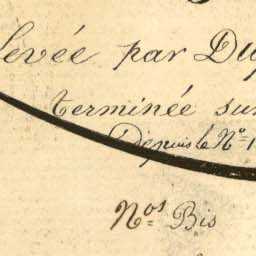 levée par Du
terminée sur
Depuis le Nº 1
Nos Bis